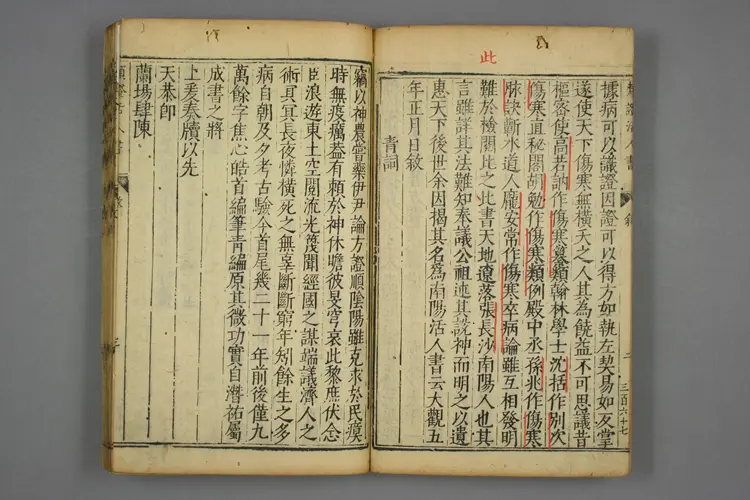 此
據病可以識證因證可以得方如執左契易如反掌
遂使天下傷寒無橫夭之人其為饒益不可思議昔
樞密使高若訥作傷寒纂類翰林學士沈括作別次
傷寒直秘閣胡勉作傷寒類例殿中丞孫兆作傷寒
脉訣蘄水道人龐安常作傷寒卒病論雖互相發明
難於檢閱比之此書天地遼落張長沙南陽人也其
言雖詳其法難知奉議公祖述其說神而明之以遺
惠天下後世余因揭其名為南陽活人書云大觀五
年正月日敘
青詞
三百六十七
竊以神農嘗藥伊尹論方證順陰陽雖克求於民瘼
時無疫癘蓋有賴於神休瞻彼旻穹哀此黎庶伏念
臣浪遊東土空閱流光茂聞經國之謀端議濟人之
術具冥長夜憐橫死之無辜斷斷窮年矧餘生之多
病自朝及夕考古驗今首尾幾二十一年前後僅九
萬餘字焦心皓首編筆青編原其微功實自潛祐屬
成書之將
上乘奏牘以先
天恭卽
蘭場肆陳